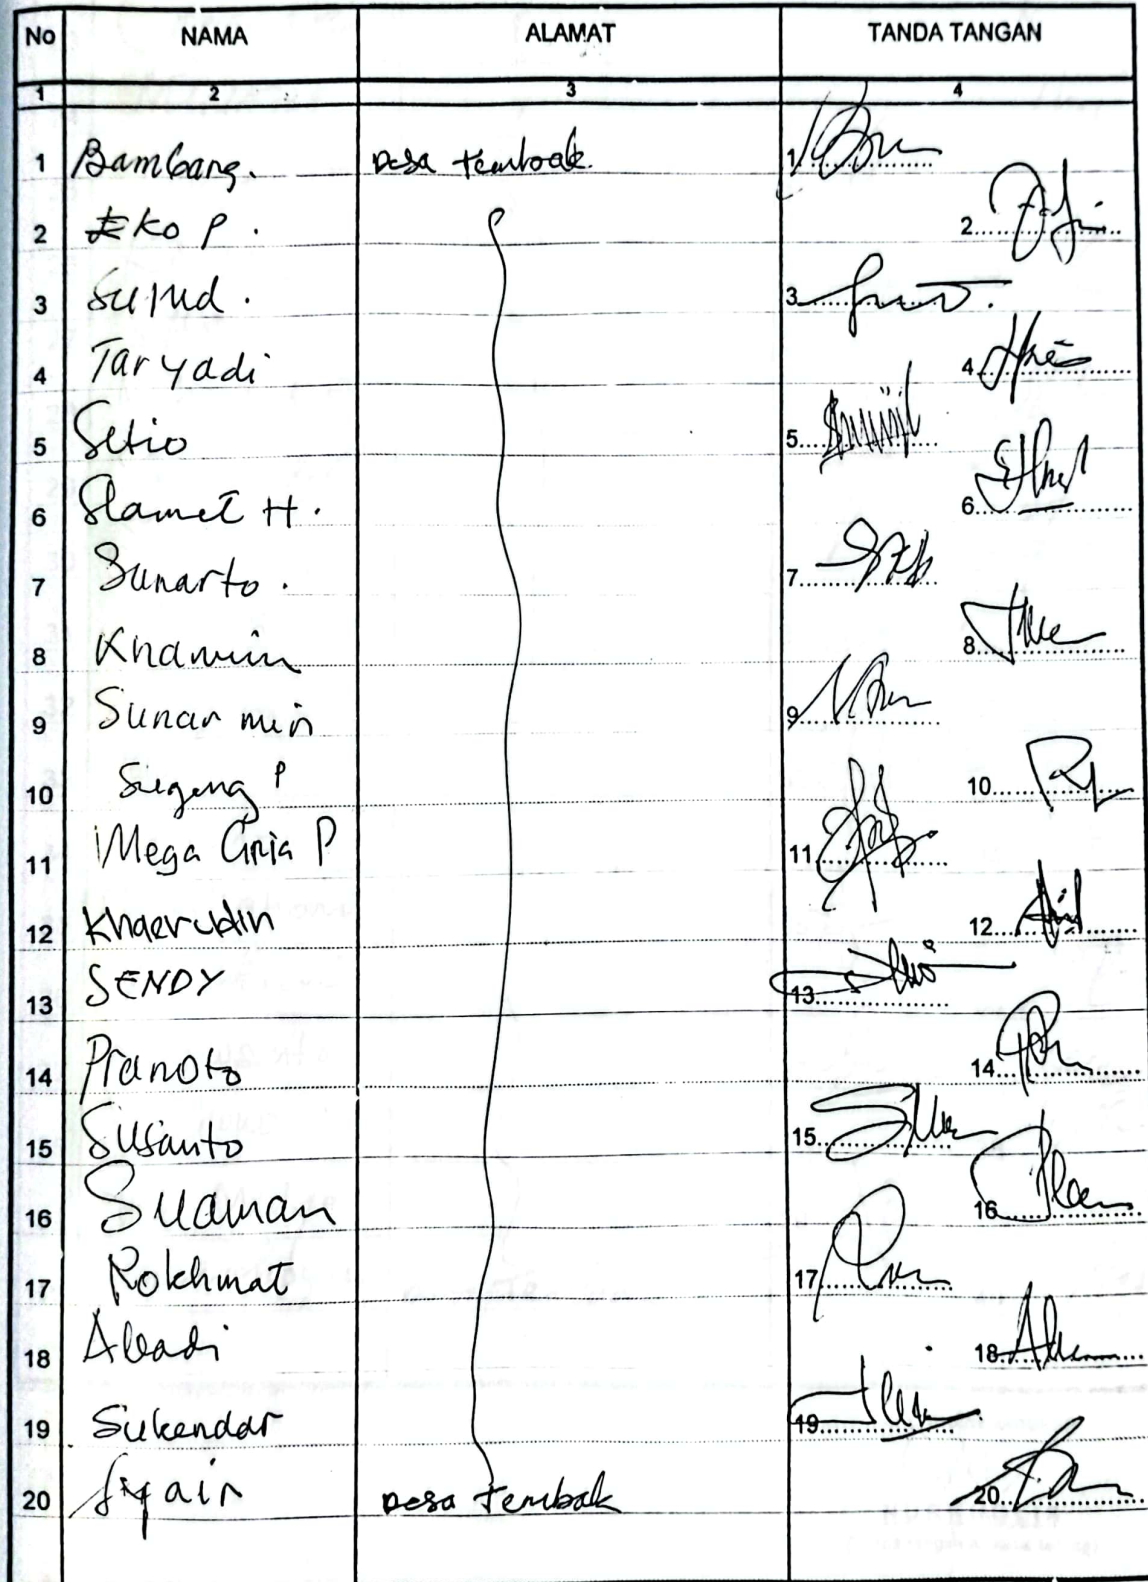 No NAMA ALAMAT TANDA TANGAN
1 2 3 4
1 Bambang. Desa Temboak. 1
2 Eko P. 2
3 Sujud. 3
4 Taryadi 4
5 Setio 5
6 Slamet H. 6
7 Sunarto. 7
8 Khamim 8
9 Sunarmin 9
10 Sugeng P 10
11 Mega Citria P 11
12 Khaerudin 12
13 SENDY 13
14 Pranoto 14
15 Susanto 15
16 Sudiman 16
17 Rokhmat 17
18 Abadi 18
19 Sukendar 19
20 Desa Tembak 20